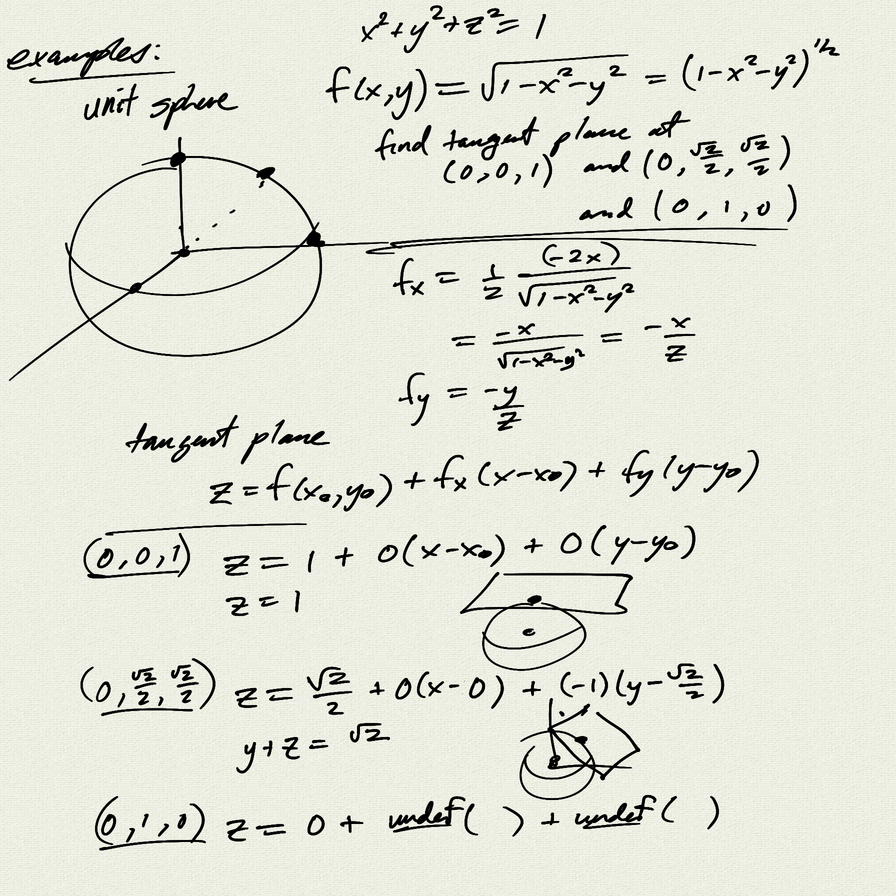 examples:
unit sphere
x² + y² + z² = 1
f(x,y) = √(1-x²-y²) = (1-x²-y²)^1/2
find tangent plane at
(0,0,1) and (0, √2/2, √2/2)
and (0, 1, 0)
fx = 1/2 (-2x)/√(1-x²-y²)
= -x/√(1-x²-y²) = -x/z
fy = -y/z
tangent plane
z = f(x₀,y₀) + fx (x-x₀) + fy (y-y₀)
(0,0,1) z = 1 + 0(x-x₀) + 0(y-y₀)
z = 1
(0, √2/2, √2/2) z = √2/2 + 0(x-0) + (-1)(y-√2/2)
y+z = √2
(0,1,0) z = 0 + undef( ) + undef( )